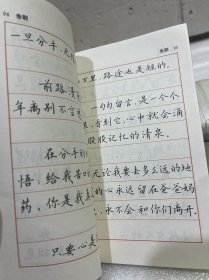 94 告别
一旦分手,无
前路漫
年离别不言
在分手的
悟:给我苦的
药,你是我真
只要心是
告别 95
万里,路途也是短的.
一句句留言,是一个个
看到它,心中就会涌
股股记忆的清泉.
无论我要去多么远的地
心永远留在爸爸妈
永不会和你们离开.